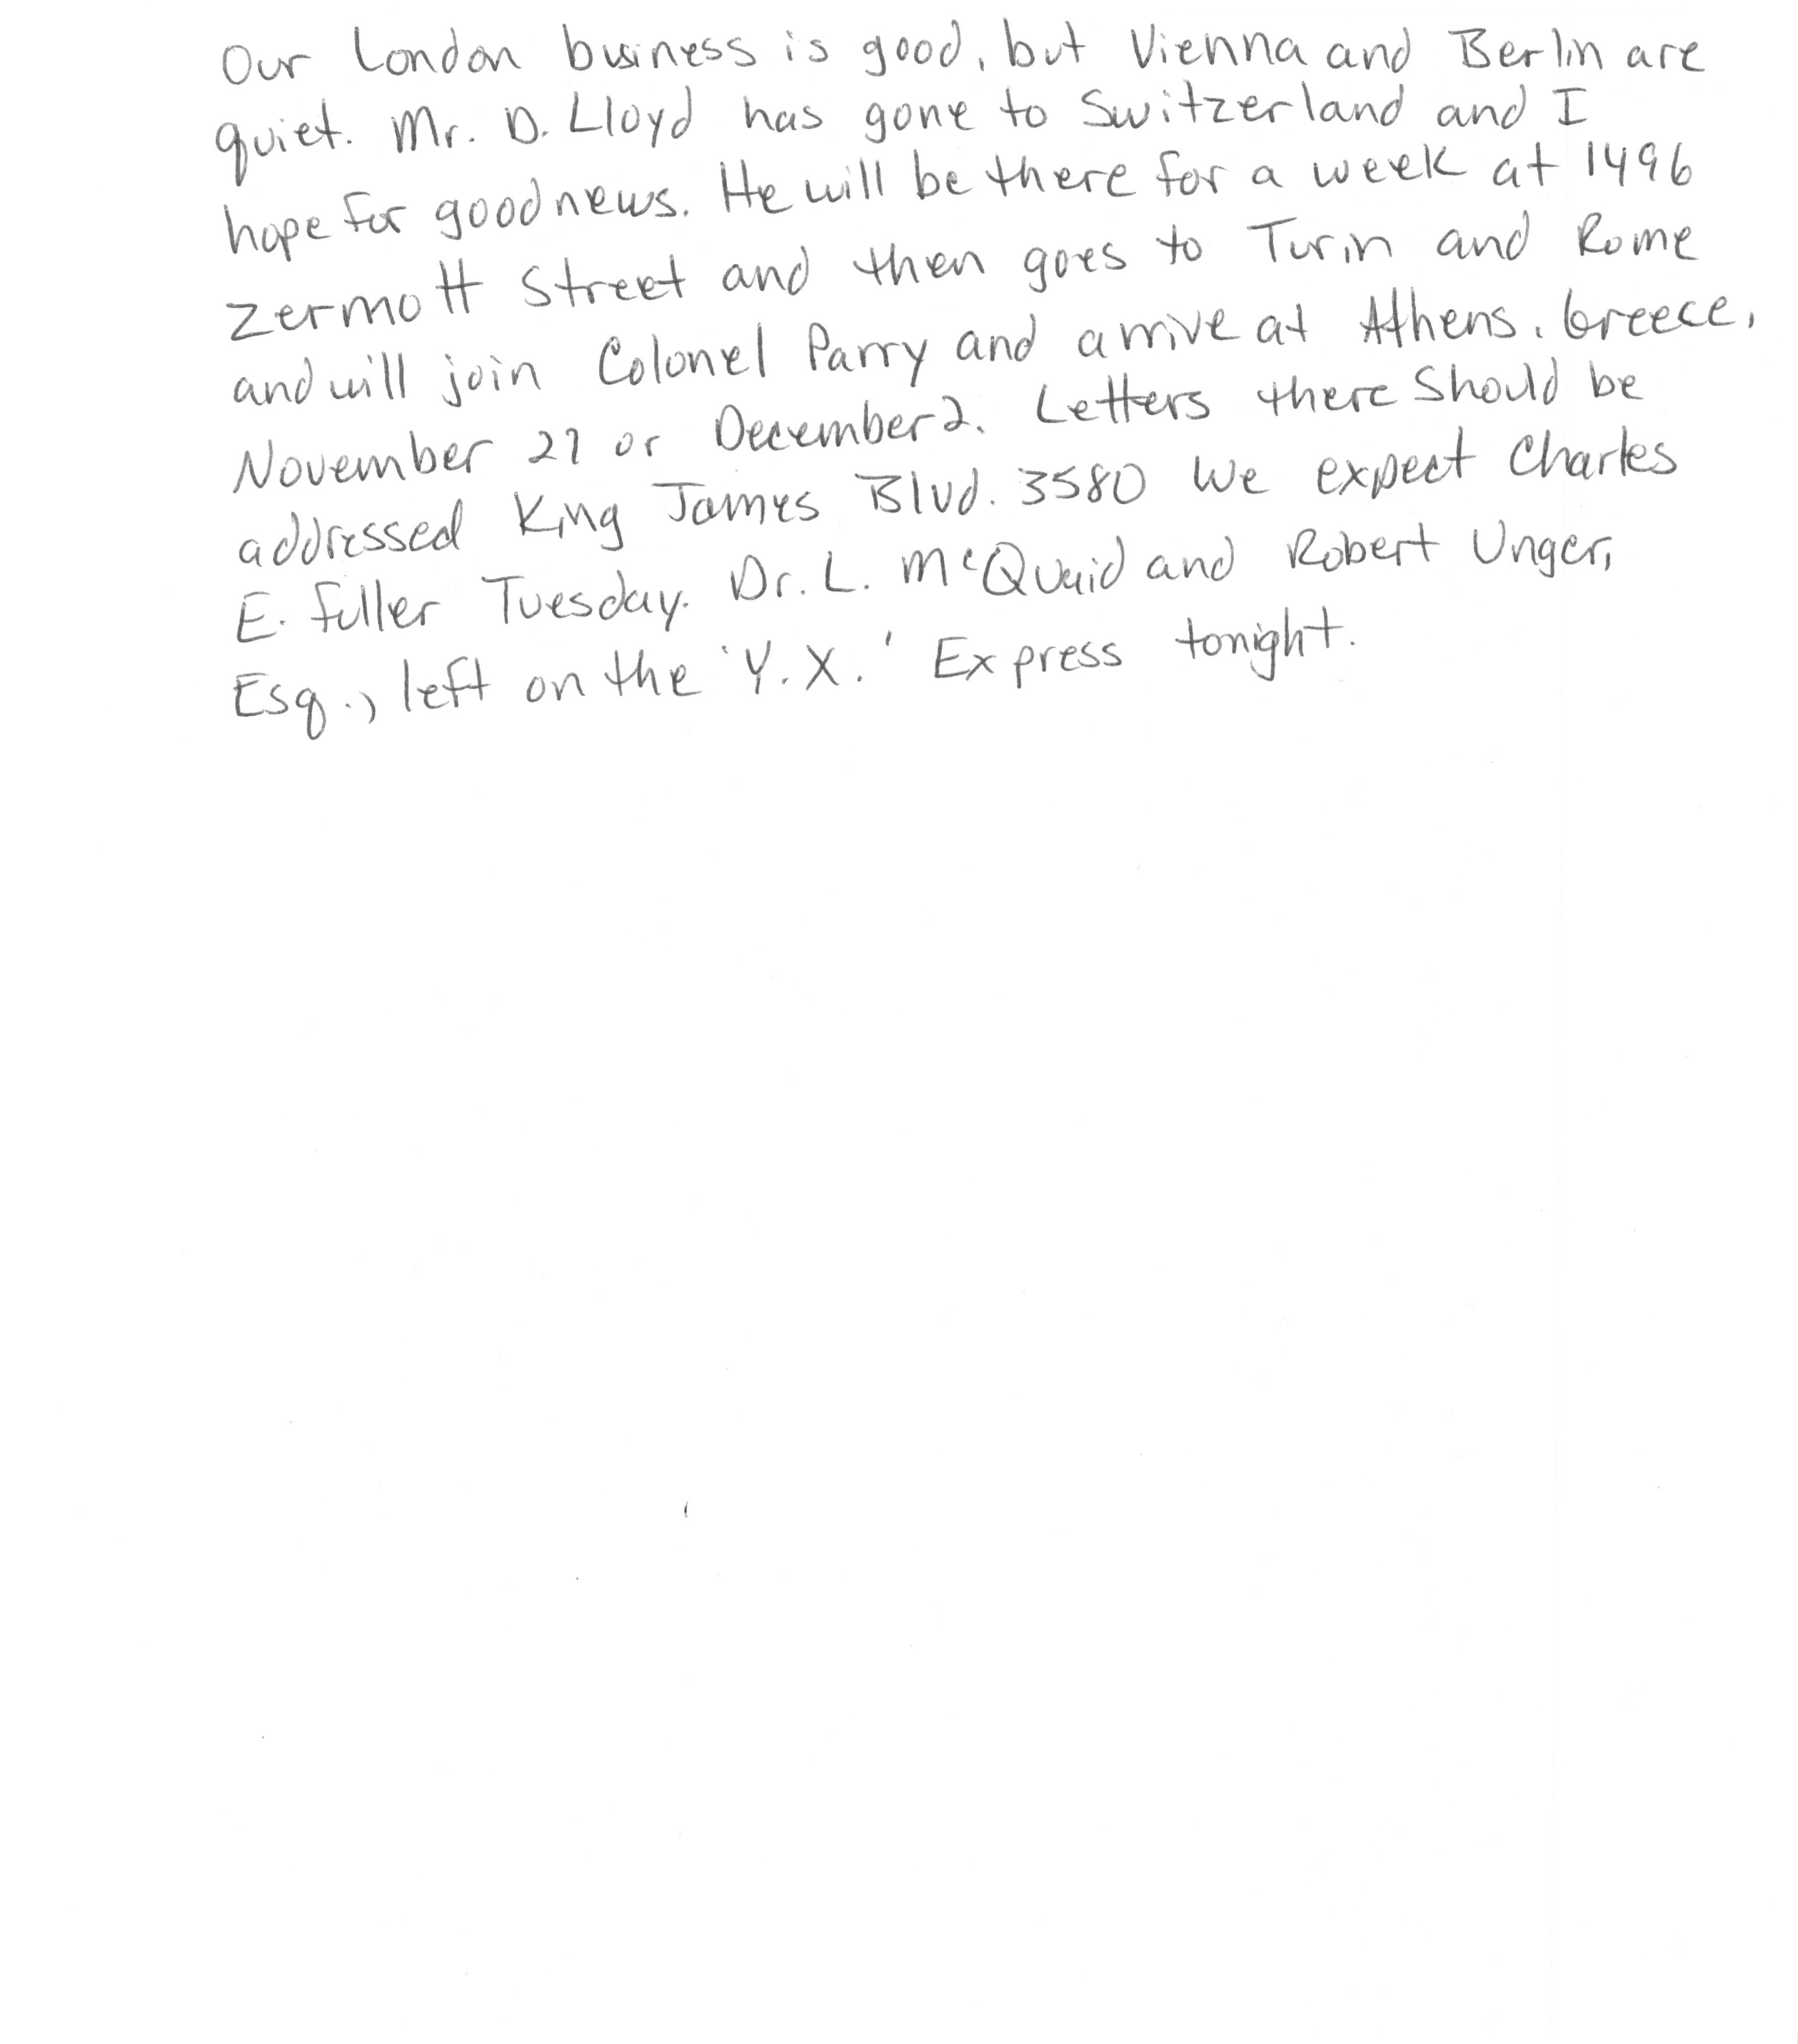 Our London business is good, but Vienna and Berlin are
quiet. Mr. D. Lloyd has gone to Switzerland and I
hope for good news. He will be there for a week at 1496
Zermott Street and then goes to Turin and Rome
and will join Colonel Parry and arrive at Athens, Greece,
November 27 or December 2. Letters there should be
addressed King James Blvd. 3580 We expect Charles
E. Fuller Tuesday. Dr. L. McQuaid and Robert Unger,
Esq., left on the 'Y.X.' Express tonight.